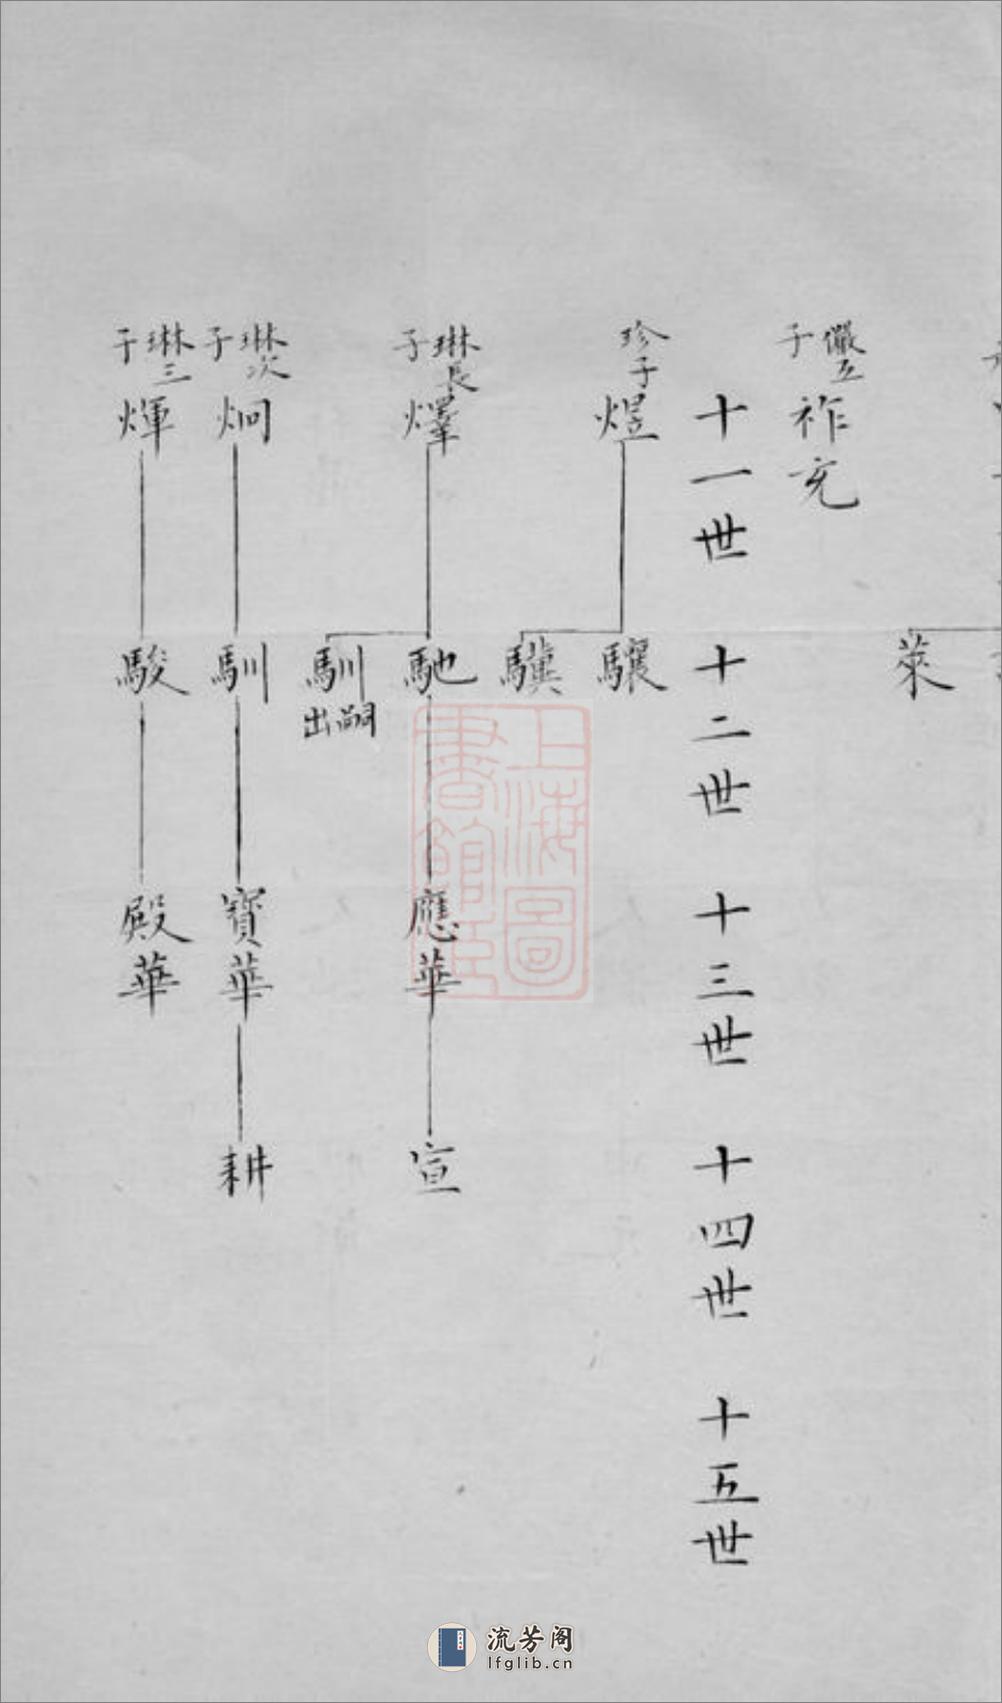 萊
儼五子
祚充
十一世
十二世
十三世
十四世
十五世
珍子
煜
驤
驥
琳長子
燡
馳
馴
出嗣
應華
宣
琳次子
炯
馴
寶華
耕
琳三子
煇
駿
殿華
上海圖書館藏
流芳阁
lfglib.cn